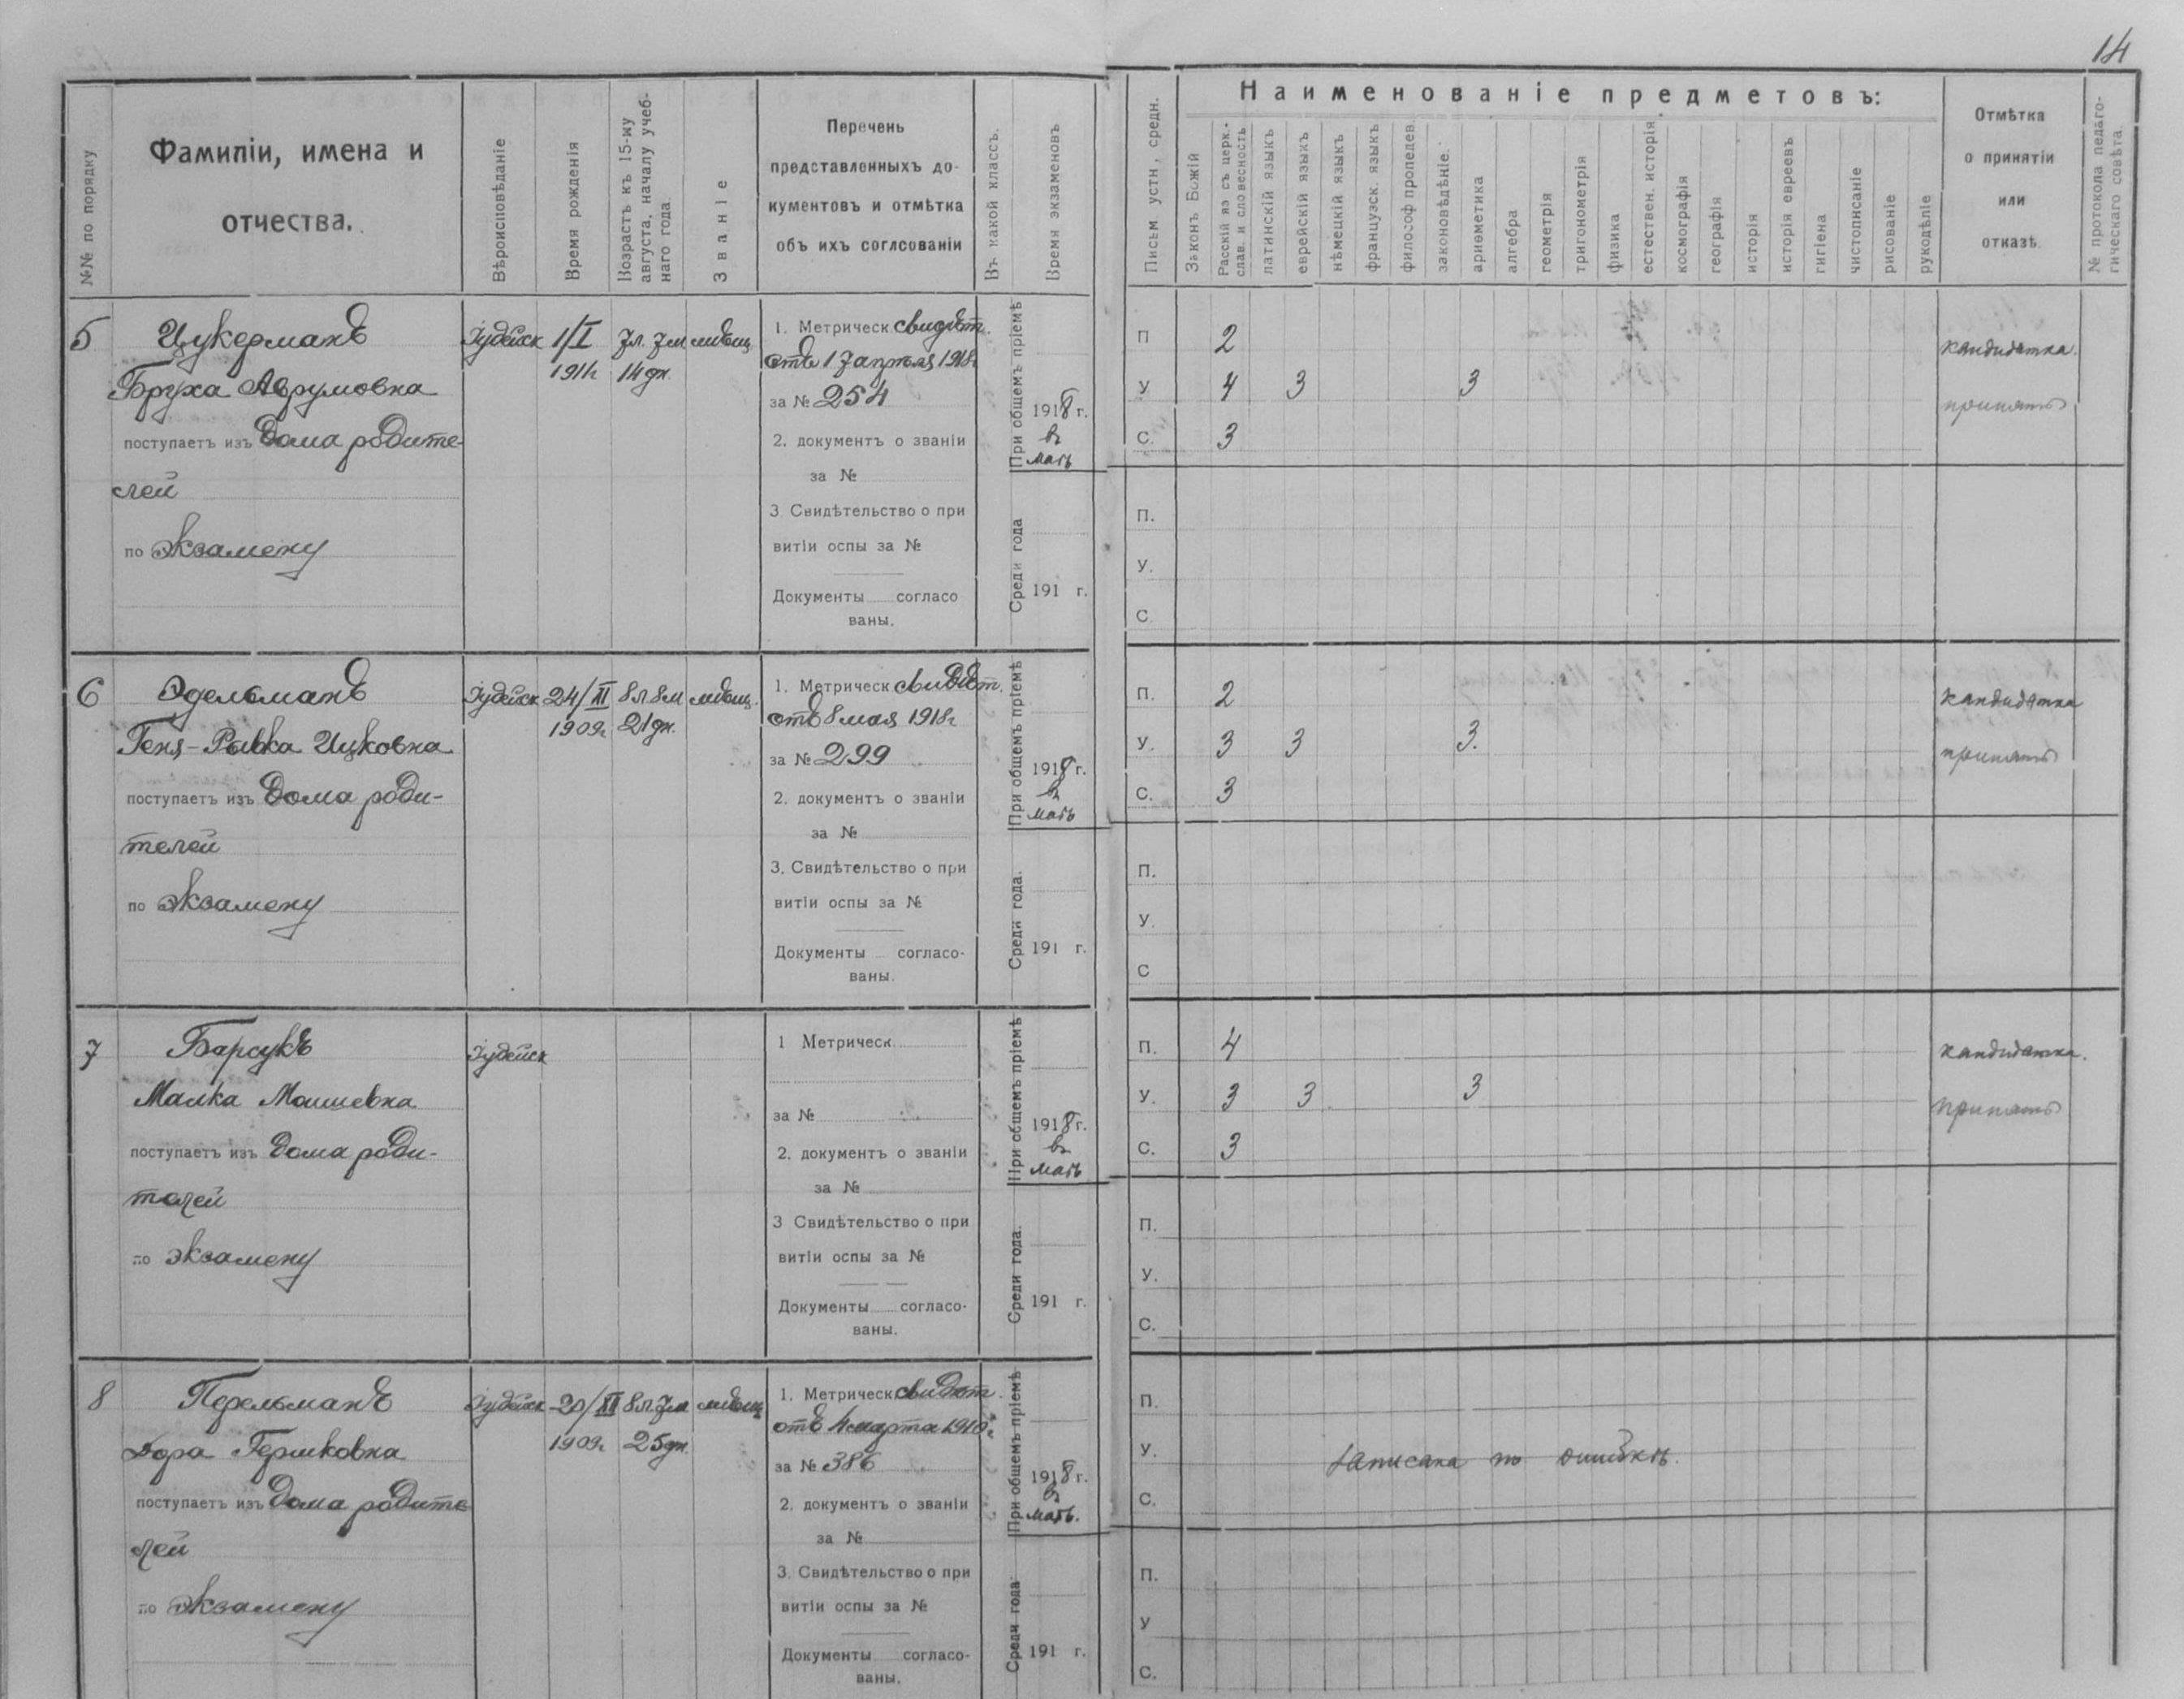 14
№№ по порядку
Фамиліи, имена и
отчества.
Вѣроисповѣданіе
Время рожденія
Возрастъ къ 15-му
августа, началу учеб-
наго года.
Званіе
Перечень
представленныхъ до-
кументовъ и отмѣтка
объ ихъ соглсованіи
Въ какой классъ.
Время экзаменовъ
Письм устн, средн.
Наименованіе предметовъ:
Законъ Божій
Расскій яз съ церк.-
слав. и словесность
латинскій языкъ
еврейскій языкъ
нѣмецкій языкъ
французск. языкъ
философ пропедев.
законовѣдѣніе.
ариѳметика
алгебра
геометрія
тригонометрія
физика
естествен. исторія.
космографія
географія
исторія
исторія евреевъ
гигіена
чистописаніе
рисованіе
рукодѣліе
Отмѣтка
о принятіи
или
отказѣ.
№ протокола педаго-
гическаго совѣта.
5
Цукерманъ
Бруха Аврумовна
поступаетъ изъ дома родите-
лей
по экзамену
Іудейск
1/I
1911г
7л. 7м
14 дн.
мѣщ.
1. Метрическ. свидѣт.
отъ 17 апрѣля 1918г
за № 254
2. документъ о званіи
за №
3 Свидѣтельство о при
витіи оспы за №
Документы согласо
ваны.
При общемъ пріемѣ
1918 г.
въ
маѣ
Среди года
191 г.
П 2
У. 4 3 3
С. 3
кандидатка.
принята
П.
У.
С
6
Эдельманъ
Геня-Ривка Ицковна
поступаетъ изъ дома роди-
телей
по экзамену
Іудейск
24/XI
1909г
8л 8м
21 дн.
мѣщ.
1. Метрическ свидѣт.
отъ 8 мая 1918г
за № 299
2. документъ о званіи
за №
3. Свидѣтельство о при
витіи оспы за №
Документы согласо-
ваны.
При общемъ пріемѣ
1918 г.
въ
маѣ
Среди года.
191 г.
П. 2
У. 3 3 3.
С. 3
кандидатка
принята
П.
У.
С
7
Барсукъ
Малка Мошевна
поступаетъ изъ дома роди-
телей
по экзамену
Іудейск
1 Метрическ
за №
2. документъ о званіи
за №
3 Свидѣтельство о при
витіи оспы за №
Документы согласо-
ваны.
При общемъ пріемѣ
1918 г.
въ
маѣ
Среди года.
191 г.
П. 4
У. 3 3 3
С. 3
кандидатка.
принята
П.
У.
С.
8
Перельманъ
Дора Гершковна
поступаетъ изъ дома родите-
лей
по экзамену
Іудейск
20/XII
1909г
8л 7м
25 дн.
мѣщ
1. Метрическ. свидѣт.
отъ 4 марта 1910г
за № 386
2. документъ о званіи
за №
3. Свидѣтельство о при
витіи оспы за №
Документы согласо-
ваны.
При общемъ пріемѣ
1918 г.
въ
маѣ.
Среди года
191 г.
П.
У. записана по ошибкѣ.
С.
П.
У
С.